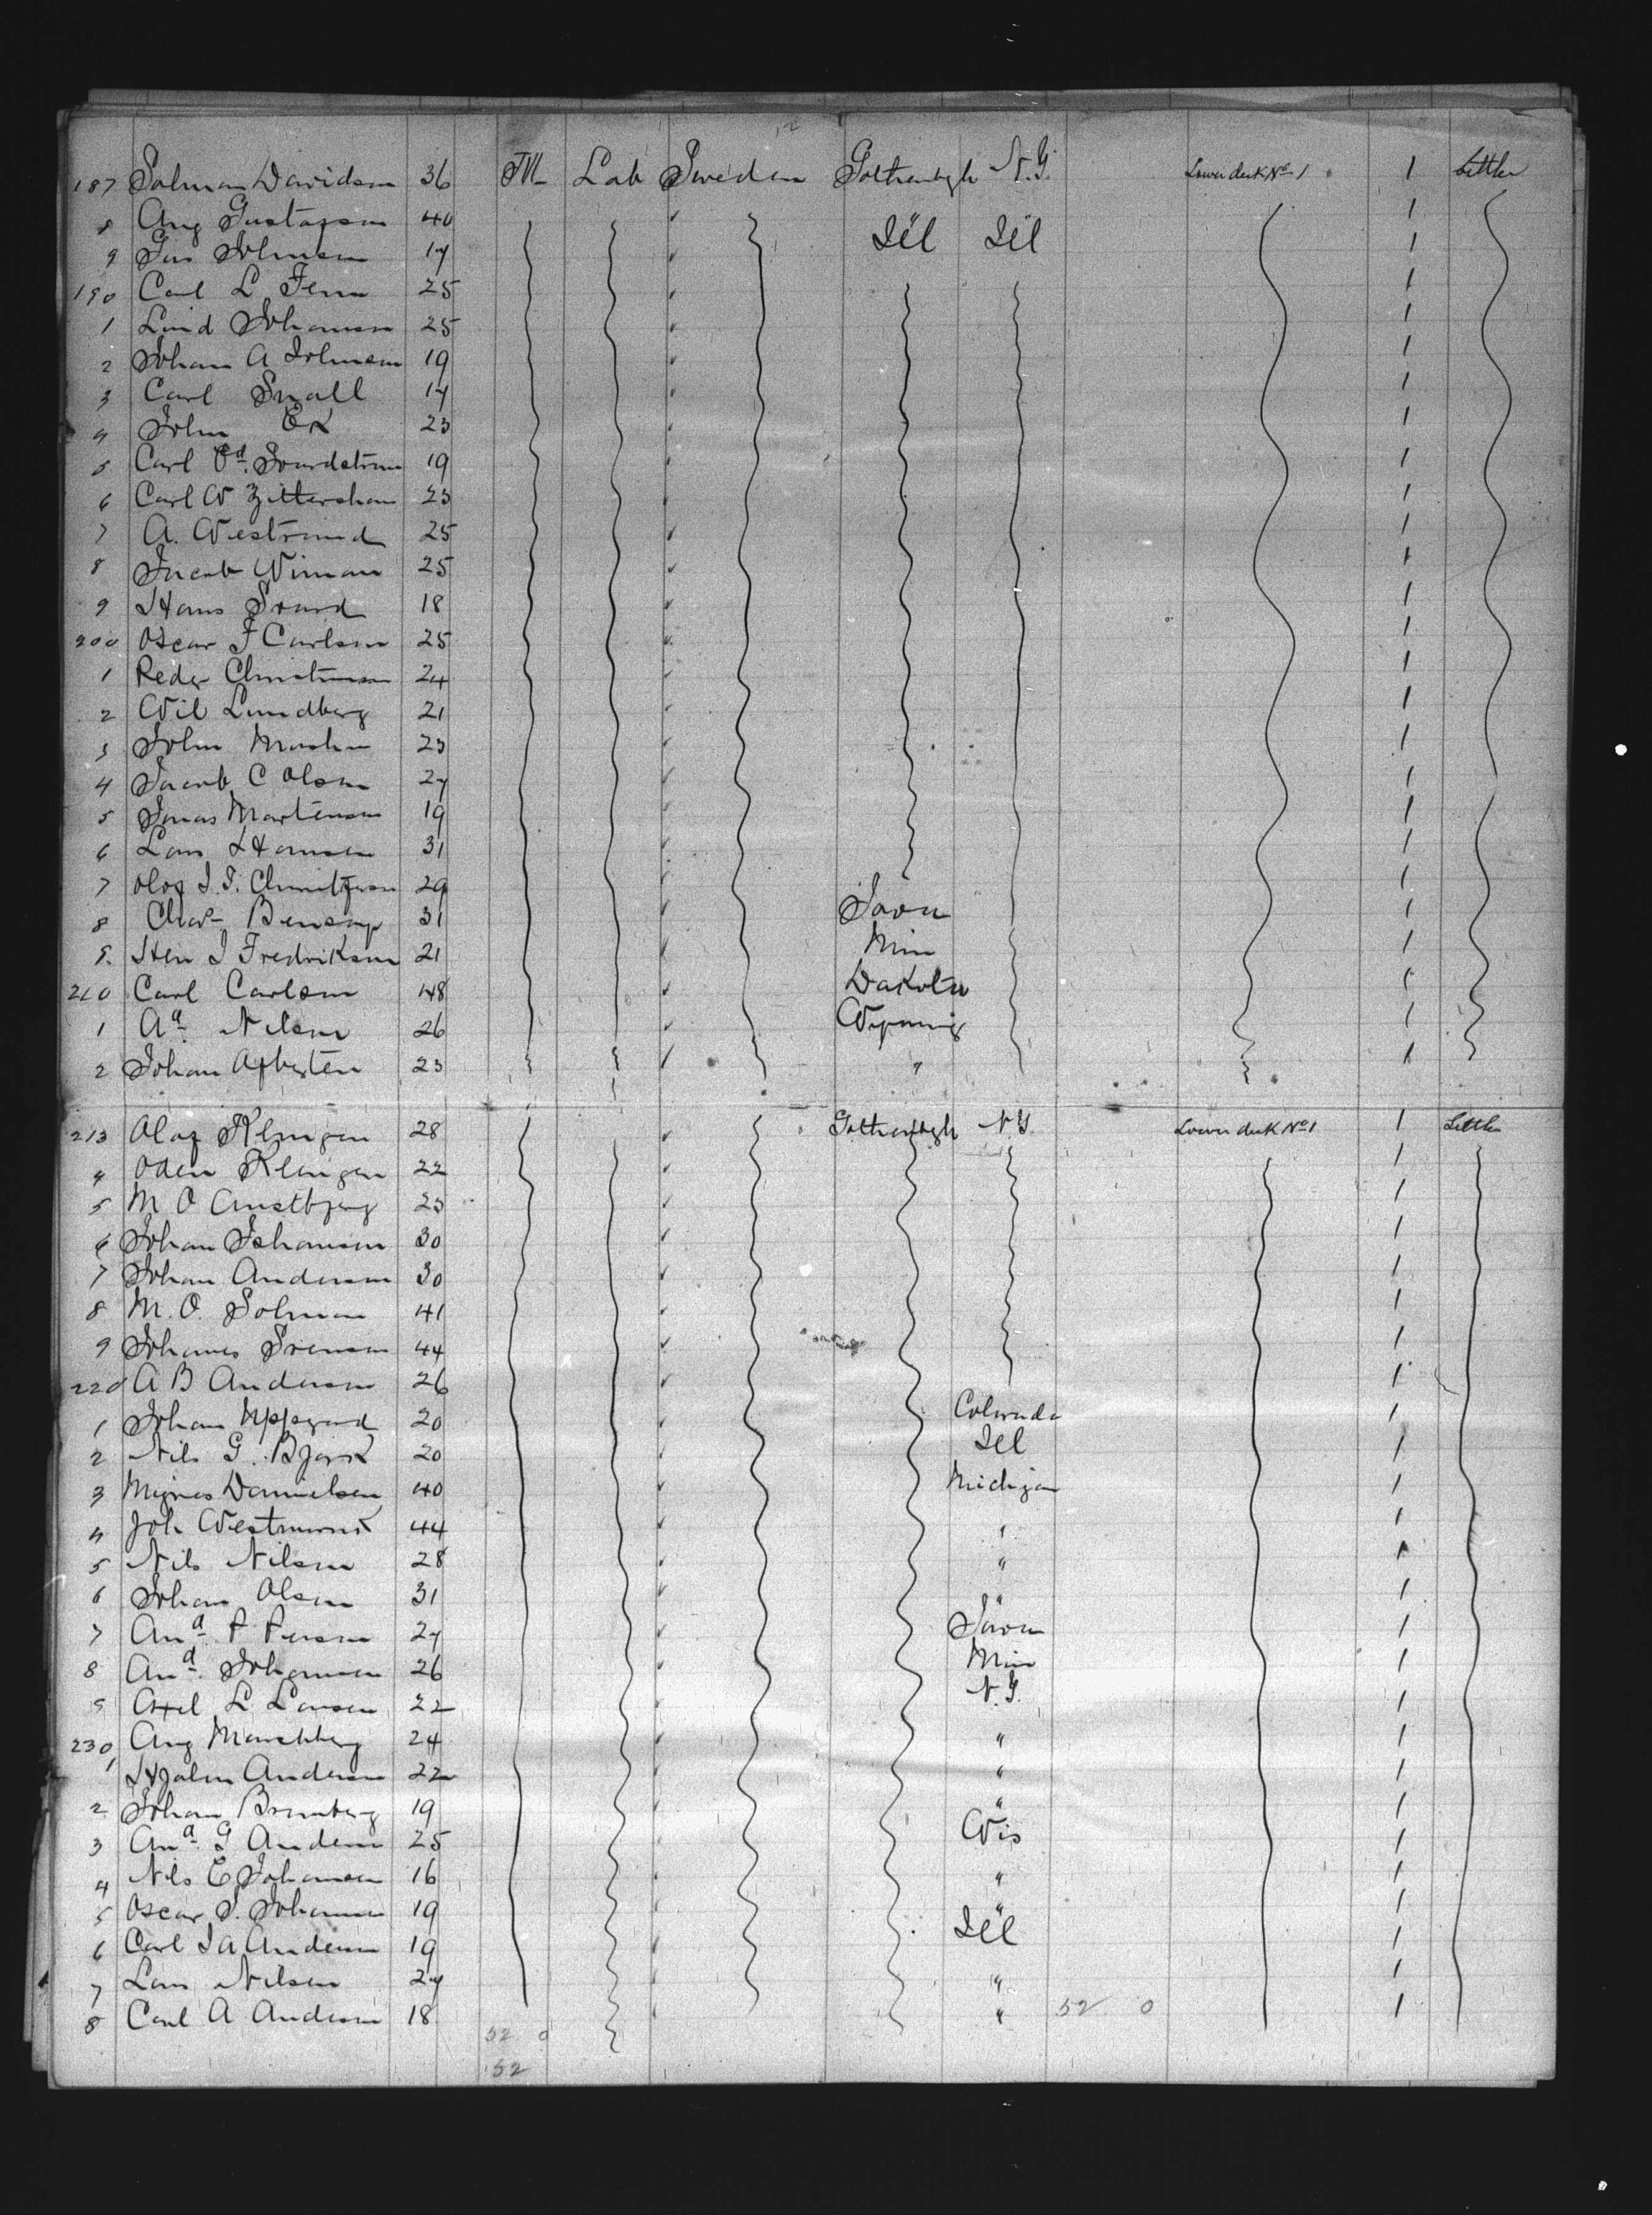 187 Salman Davidson 36 M Lab Sweden Gothenbgh N.Y. Lower deck No 1 1 Settler
8 Aug Gustafson 40 1
9 Gus Johnson 17 Ill Ill 1
190 Carl L Fern 25 1
1 Lind Johanson 25 1
2 Johan A Johnson 19 1
3 Carl Small 17 1
4 John Ek 23 1
5 Carl Ed. Svardstrom 19 1
6 Carl W Zittershan 23 1
7 A. Westrund 25 1
8 Jacob Wiman 25 1
9 Hans Svard 18 1
200 Oscar F Carlson 25 1
1 Peder Christianson 24 1
2 Wil Lundberg 21 1
3 John 23 1
4 Jacob C Olson 27 1
5 Jonas Martenson 19 1
6 Lars Hanson 31 1
7 Olof J. F. 29 1
8 Chas 31 Iowa 1
9 Hen J Fredrikson 21 Min 1
210 Carl Carlson 48 Dakota 1
1 Ad Nilson 26 Wyoming 1
2 Johan 23 " 1
213 Olof Klingen 28 Gothenbgh N.Y. Lower deck No 1 1 Settler
4 Oden Klingen 22 1
5 M O 23 1
6 Johan Johanson 30 1
7 Johan Anderson 30 1
8 M. O. Solman 41 1
9 Johanes Svenson 44 1
220 A B Anderson 26 1
1 Johan Uppgard 20 Colorado 1
2 Nils G. Bjork 20 Ill 1
3 Magnes Danielsen 40 Michigan 1
4 Joh 44 " 1
5 Nils Nilson 28 " 1
6 Johan Olson 31 " 1
7 And P Person 27 Iowa 1
8 And. Johanson 26 Min 1
9 Axel L Larsen 22 N.Y. 1
230 Aug 24 " 1
1 Hjalm Anderson 22 " 1
2 Johan Bromberg 19 " 1
3 And G Anderson 25 Wis 1
4 Nils E Johanson 16 " 1
5 Oscar S. Johanson 19 " 1
6 Carl J A Anderson 19 Ill 1
7 Lars Nilson 27 " 1
8 Carl A Anderson 18 " 52 0 1
52 0
52